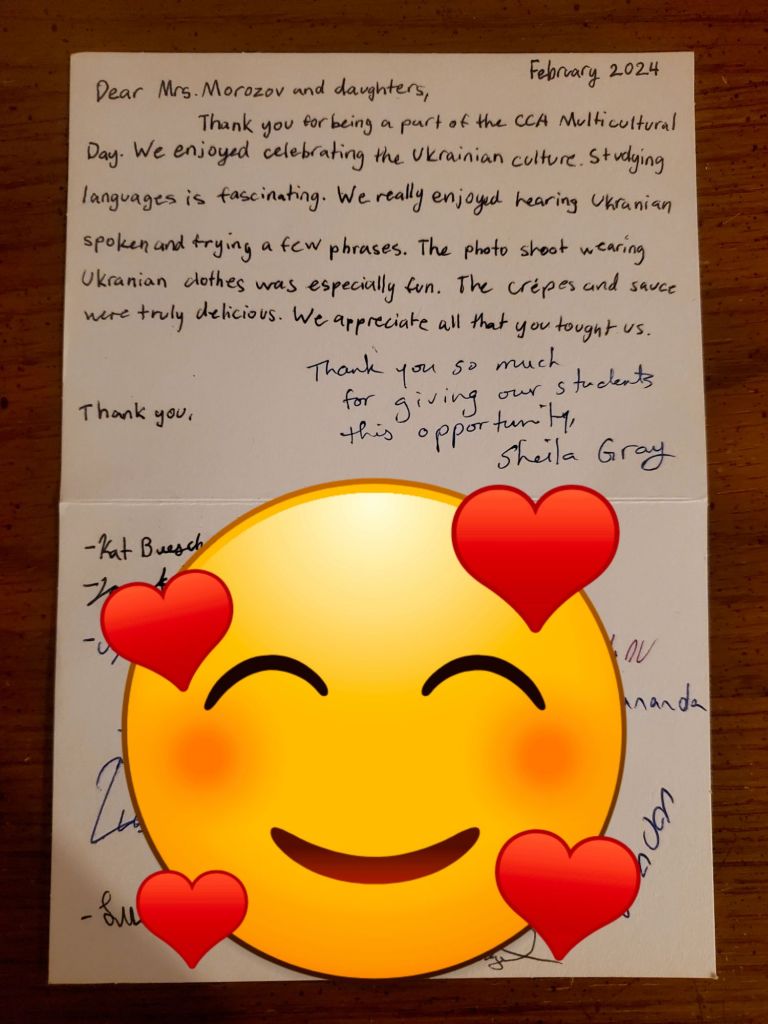 February 2024
Dear Mrs. Morozov and daughters,
Thank you for being a part of the CCA Multicultural
Day. We enjoyed celebrating the Ukrainian culture. Studying
languages is fascinating. We really enjoyed hearing Ukranian
spoken and trying a few phrases. The photo shoot wearing
Ukranian clothes was especially fun. The crépes and sauce
were truly delicious. We appreciate all that you tought us.
Thank you so much
for giving our students
this opportunity,
Sheila Gray
Thank you,
-Kat Buesch